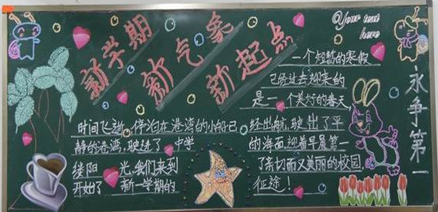 新学期
新气象
新起点
Your text
here
一个短暂的寒假
已经过去迎来的
是一个美好的春天
时间飞逝,停泊在港湾的小船已
经出航,驶出了平
静的港湾,驶进了
的海面迎着早晨第一
缕阳 光,我们来到
了亲切而又美丽的校园
开始了 新一学期的
征途!
永争第一